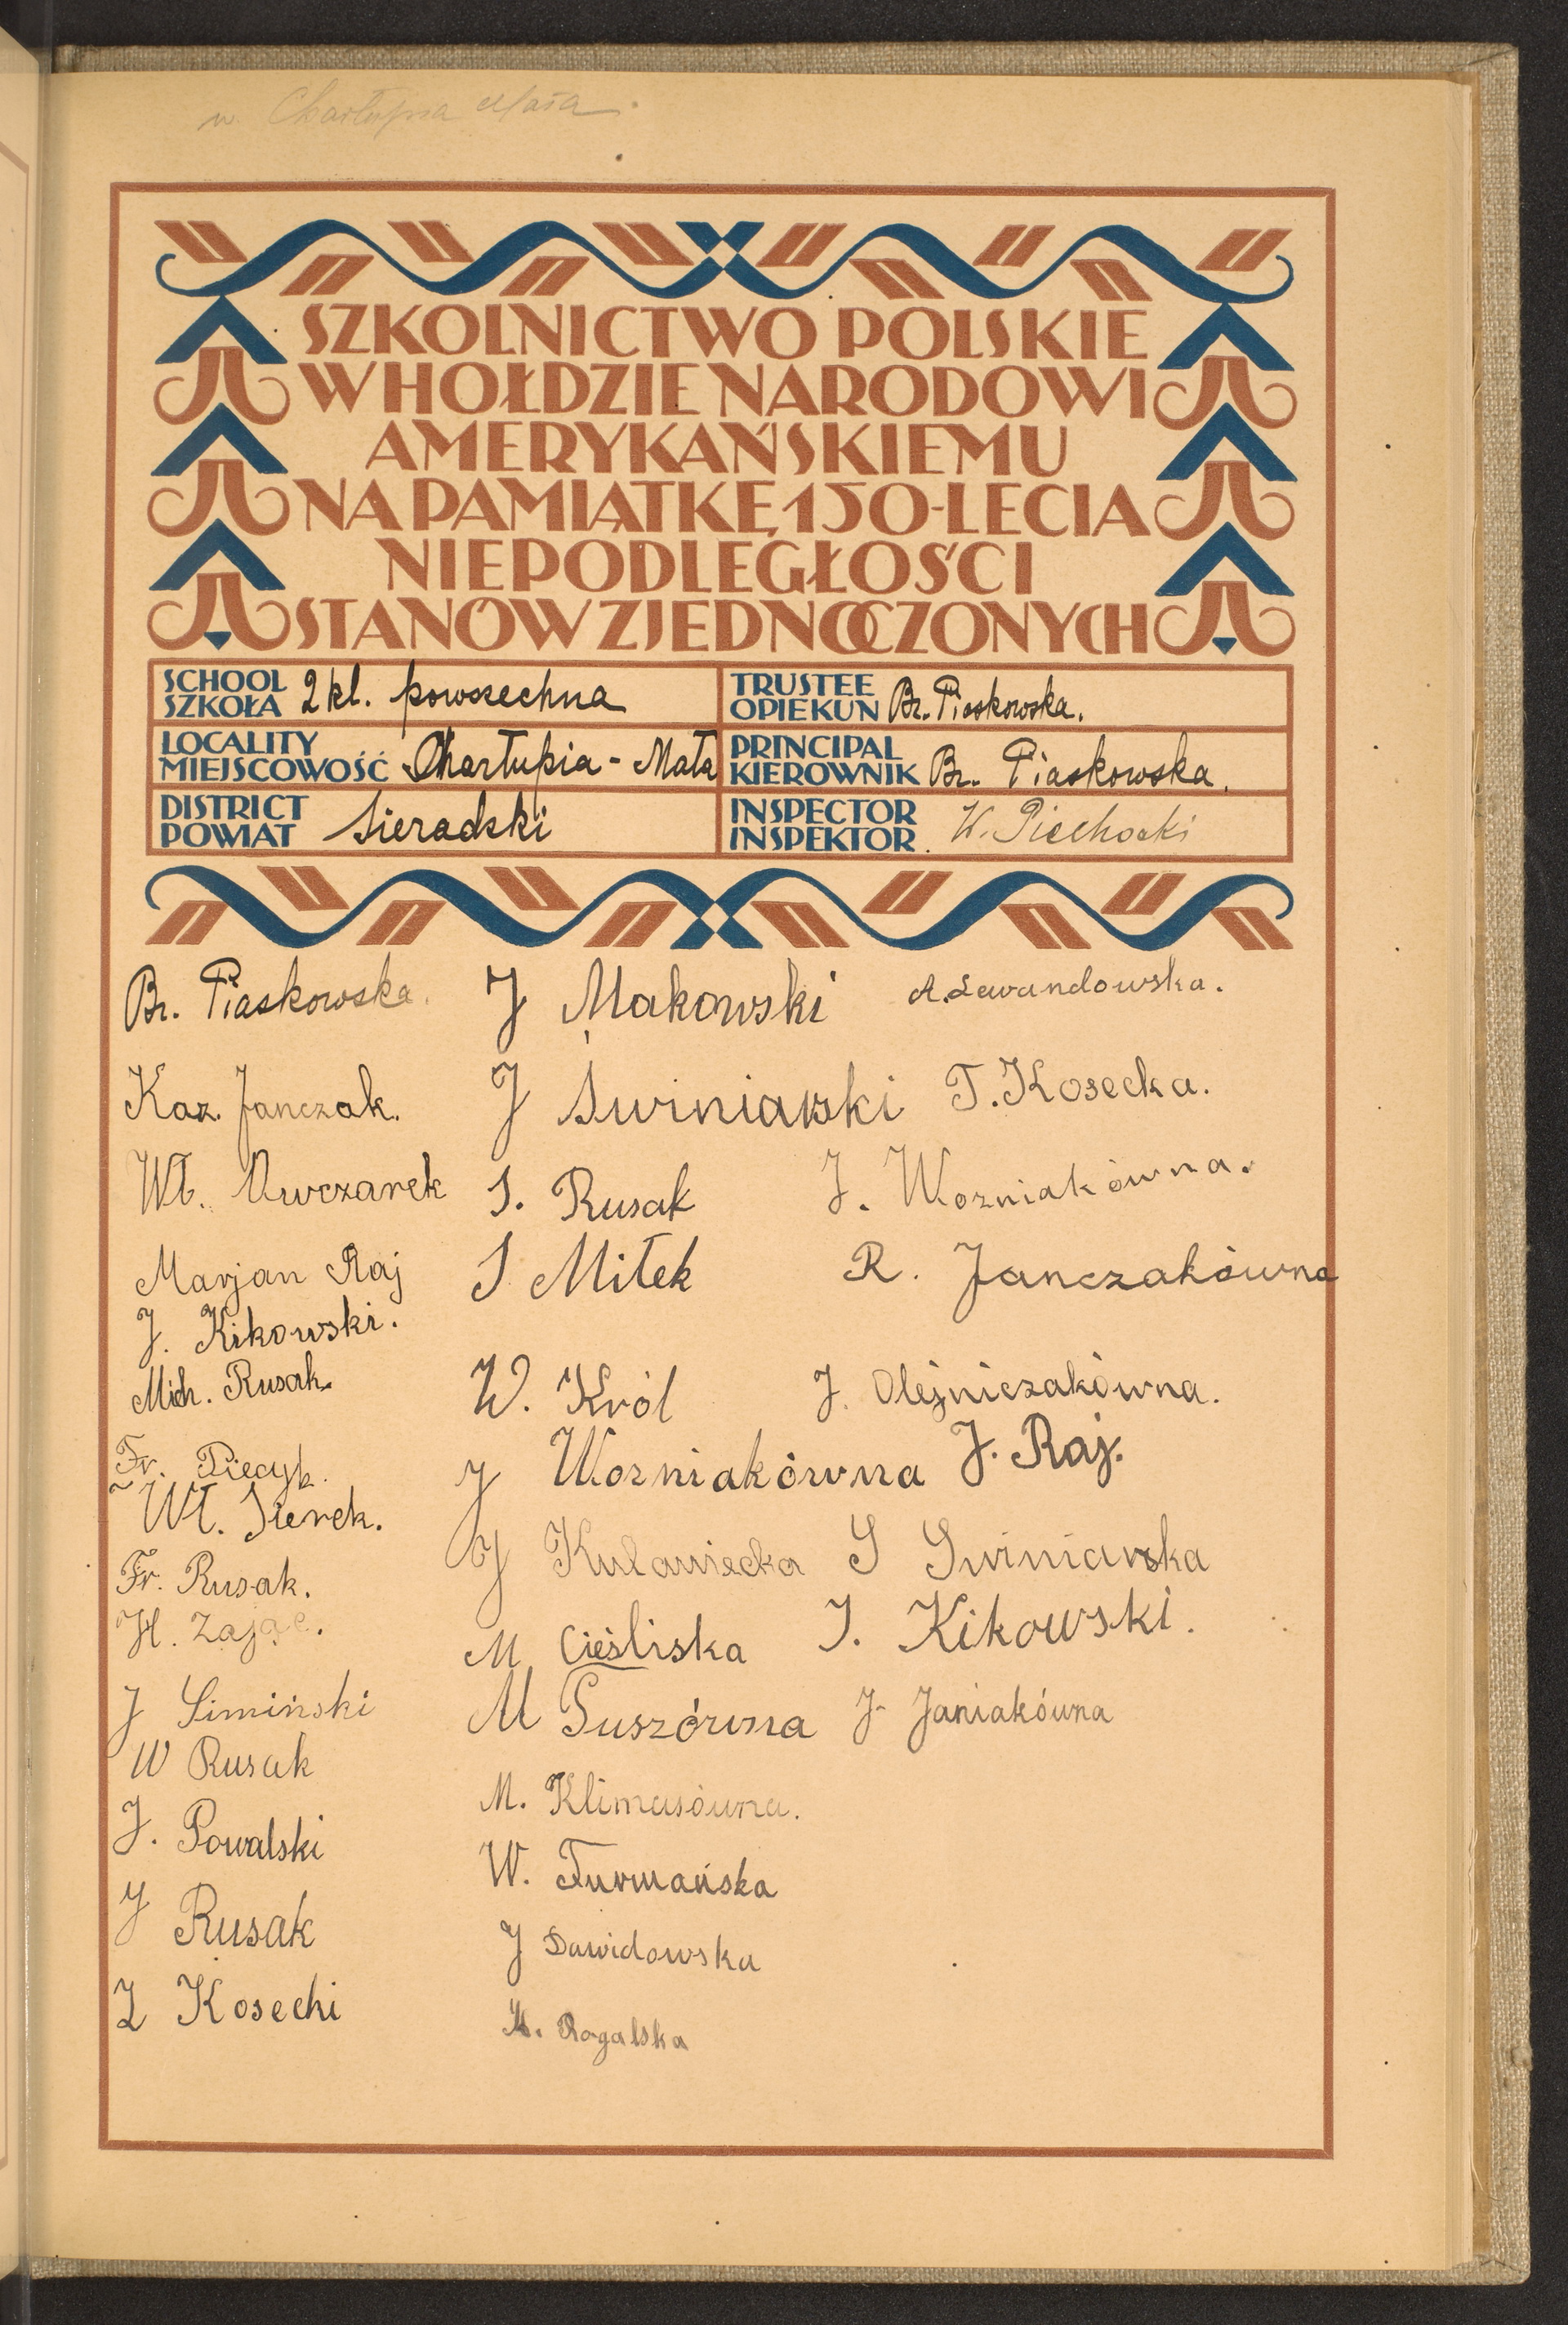 w. Charłupia Mała
SZKOLNICTWO POLSKIE
W HOŁDZIE NARODOWI
AMERYKAŃSKIEMU
NA PAMIĄTKĘ 150-LECIA
NIEPODLEGŁOŚCI
STANÓW ZJEDNOCZONYCH
SCHOOL
SZKOŁA 2 kl. powszechna
TRUSTEE
OPIEKUN Br. Piaskowska.
LOCALITY
MIEJSCOWOŚĆ Charłupia - Mała
PRINCIPAL
KIEROWNIK Br. Piaskowska.
DISTRICT
POWIAT Sieradzki
INSPECTOR
INSPEKTOR W. Piechocki
Br. Piaskowska.
Kaz. Janczak.
Wł. Owczarek
Marjan Raj
J. Kikowski.
Mich. Rusak.
Fr. Piecyk.
Wł. Sierek.
Fr. Rusak.
H. Zając.
J Simiński
W Rusak
J. Powalski
J Rusak
Z Kosecki
J Makowski
J Świniarski
S. Rusak
S Miłek
W. Król
J Wozniakówna
J Kulawiecka
M Cieśliska
M Tuszówna
M. Klimasówna.
W. Furmańska
J Dawidowska
M. Rogalska
A. Lewandowska.
T. Kosecka.
J. Wozniakówna.
R. Janczakówna
J. Olejniczakówna.
J. Raj.
S Swiniarska
J. Kikowski.
J Janiakówna